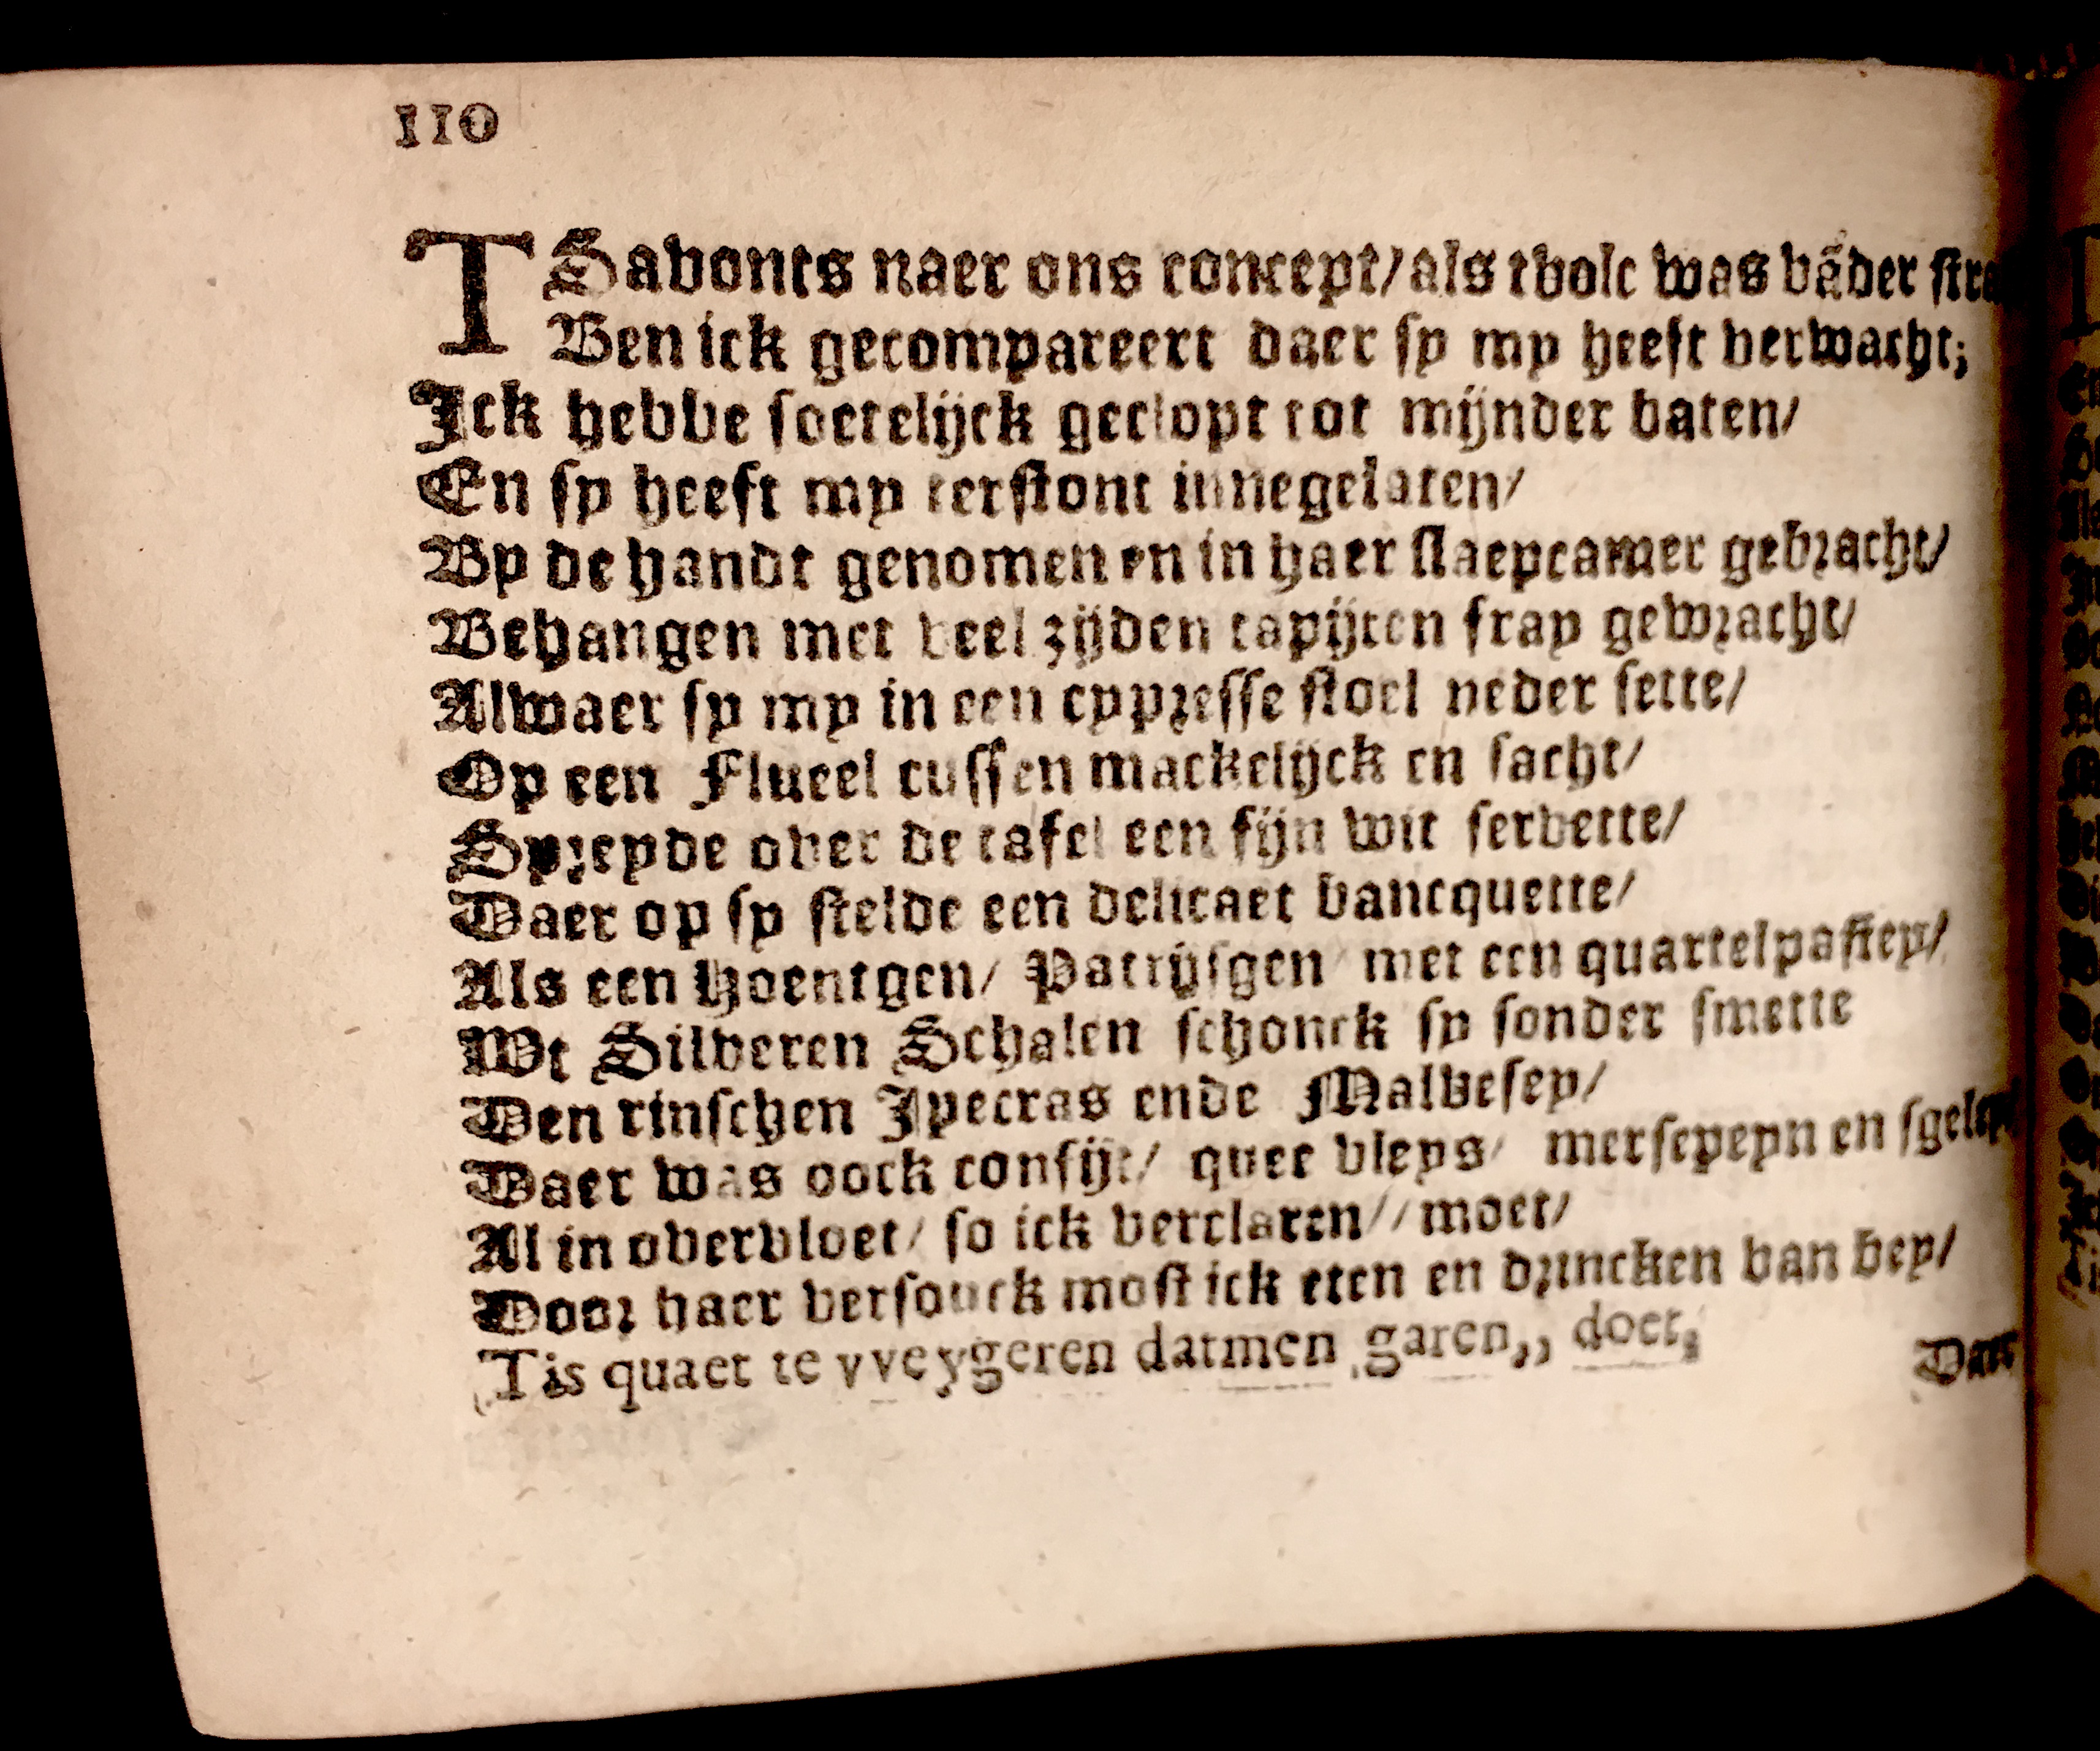 110
TSavonts naer ons concept/ als tvolc was vãder stra
Ben ick gecompareert daer sy my heeft verwacht;
Ick hebbe soetelijck geclopt tot mijnder baten/
En sy heeft my terstont innegelaten/
By de handt genomen en in haer slaepcamer gebracht/
Behangen met veel zijden tapijten fray gewracht/
Alwaer sy my in een cypresse stoel neder sette/
Op een Flueel cussen mackelijck en sacht/
Spreyde over de tafel een fijn wit servette/
Daer op sy stelde een delicaet bancquette/
Als een Hoentgen/ Patrijsgen/ met een quartelpastey/
Wt Silveren Schalen schonck sy sonder smette
Den rinschen Ipecras ende Malvesey/
Daer was oock confijt/ quee vleys/ mersepeyn en
Al in overvloet/ so ick verclaren// moet/
Door haer versouck most ick eten en drincken van bey/
Tis quaet te vveygeren datmen garen,, doet;
Daer